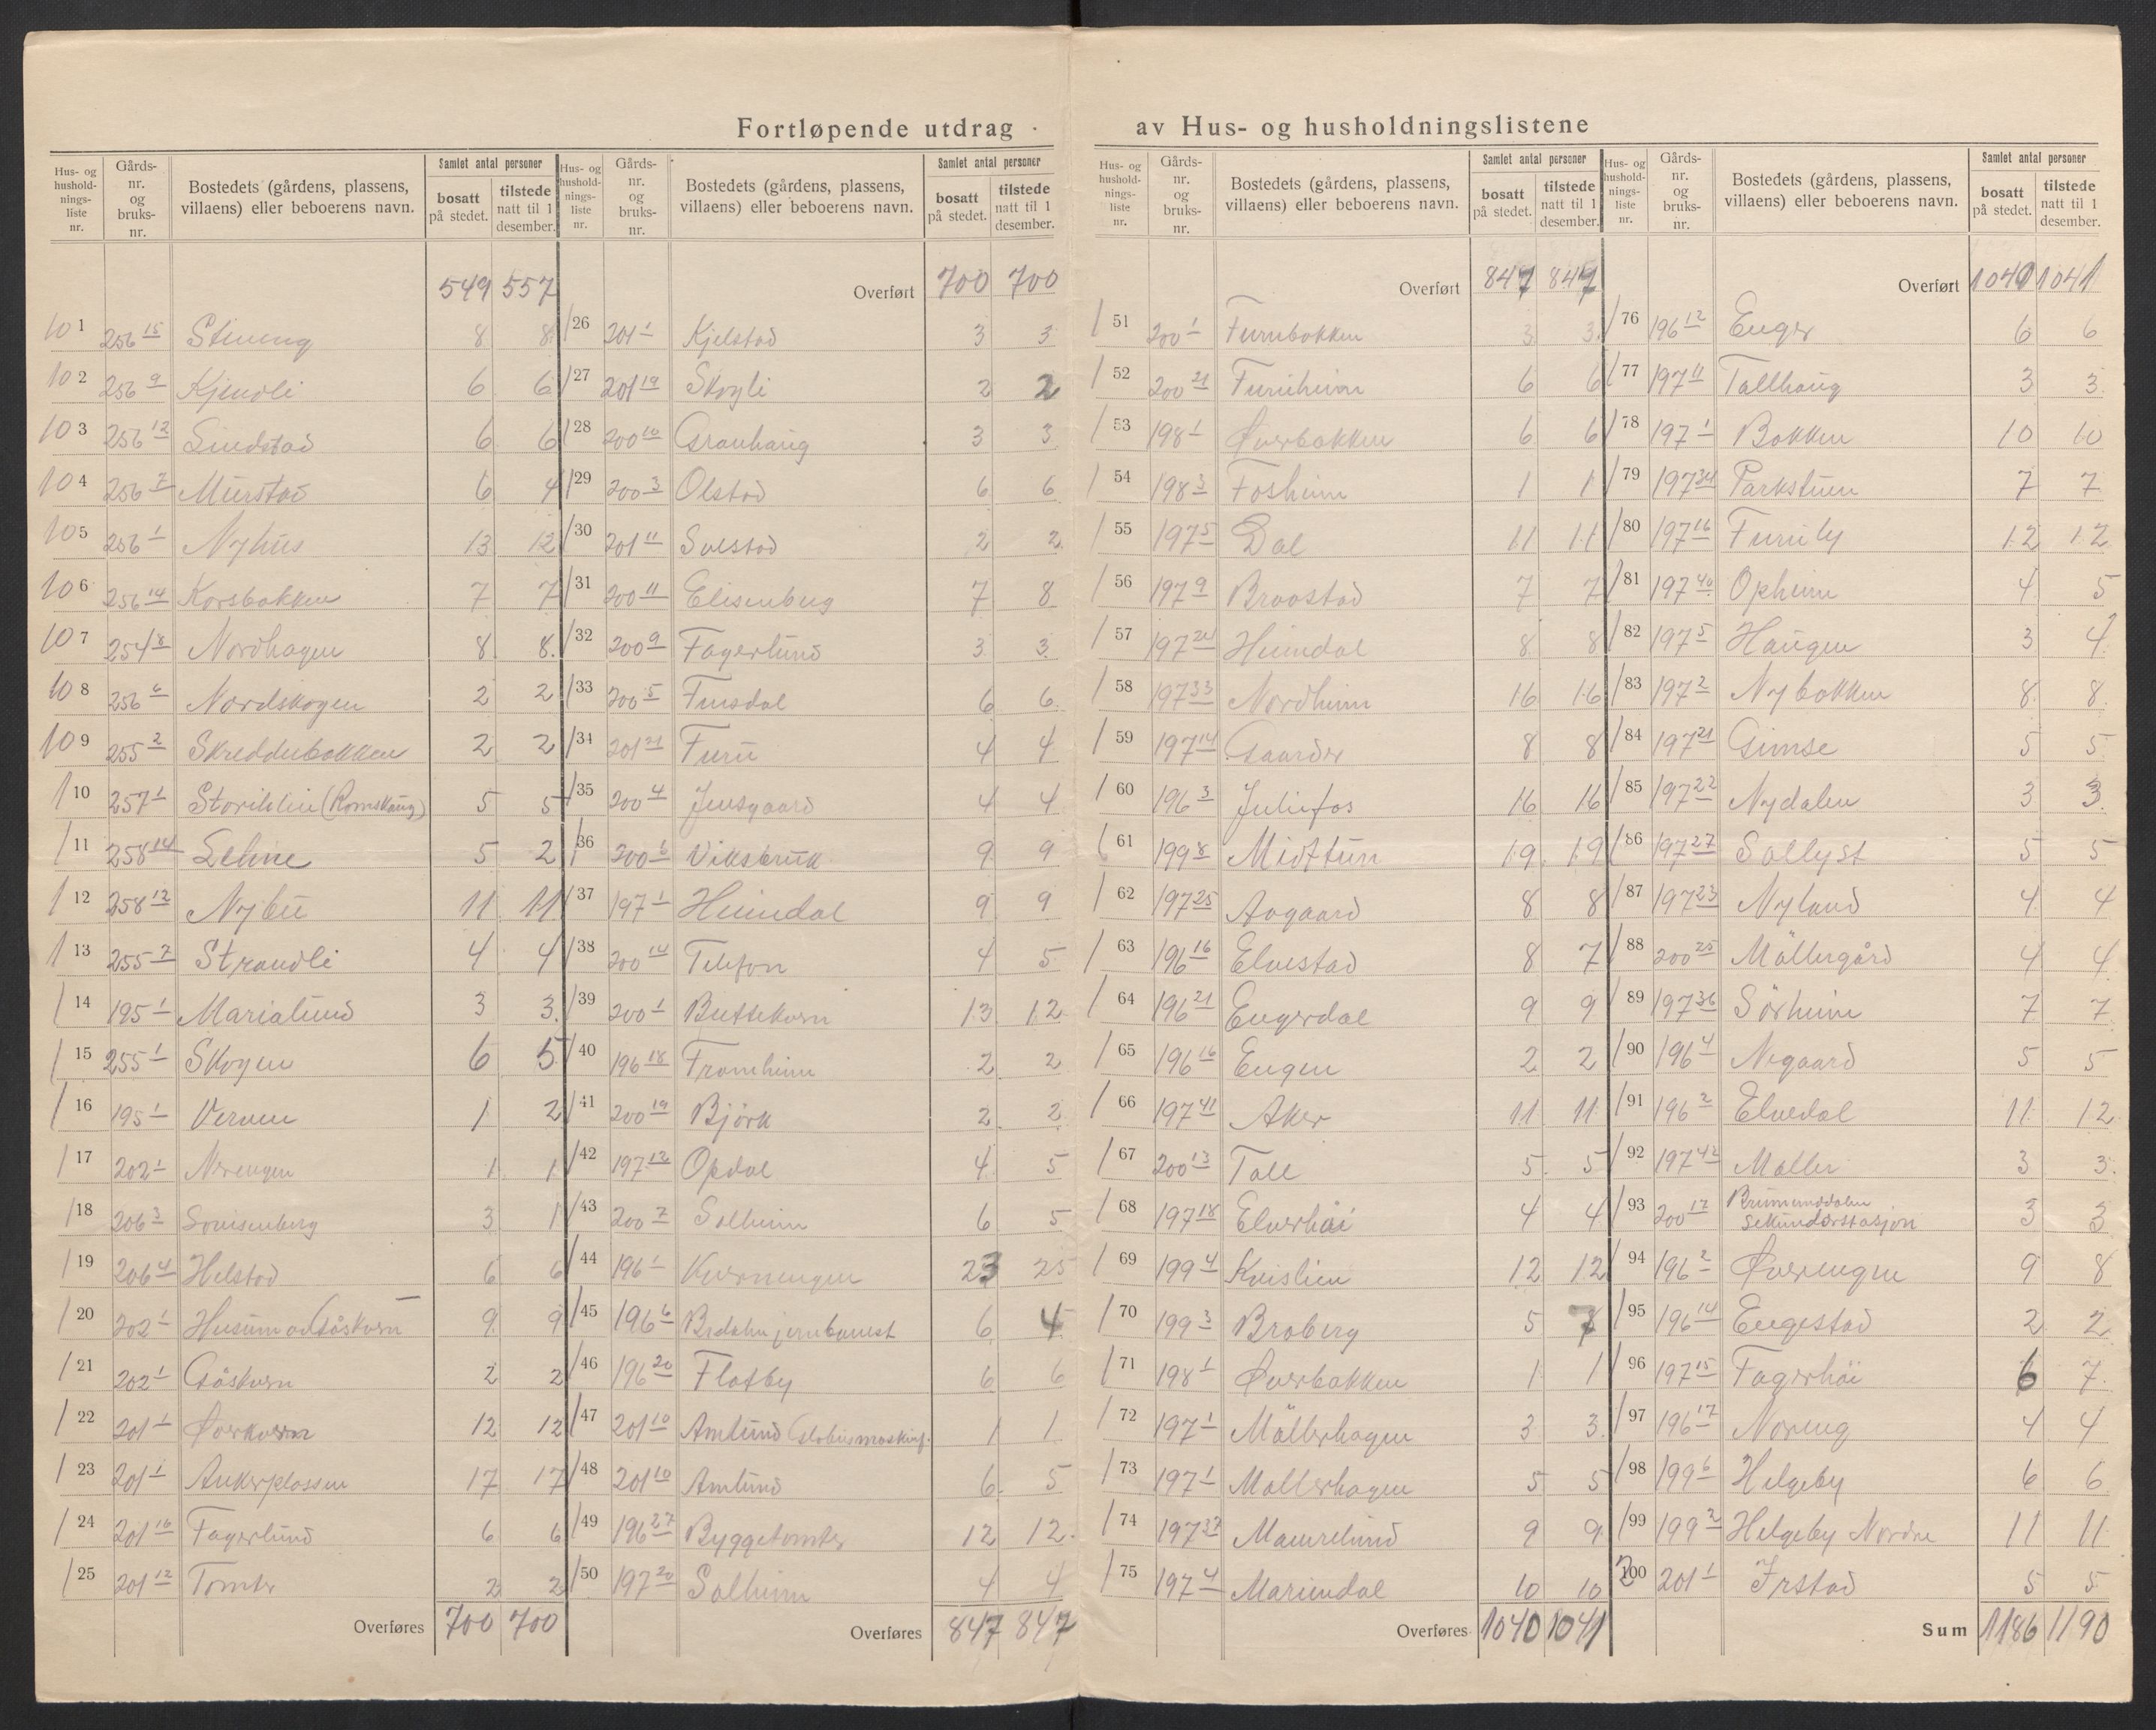 Fortløpende utdrag av Hus- og husholdningslistene
Hus- og husholdnings-liste nr. Gårds-nr. og bruks-nr. Bostedets (gårdens, plassens, villaens) eller beboerens navn. Samlet antal personer bosatt på stedet. tilstede natt til 1 desember.
549 557
10 1 256 15 Stueeng 8 8
10 2 256 9 Kjendli 6 6
10 3 256 12 Lindstad 6 6
10 4 256 7 Murstad 6 4
10 5 256 1 Nyhus 13 12
10 6 256 14 Korsbakken 7 7
10 7 254 8 Nordhagen 8 8
10 8 256 6 Nordskogen 2 2
10 9 255 2 Skredderbakken 2 2
1 10 257 1 Storihlie (Romskaug) 5 5
1 11 258 14 Lehne 5 2
1 12 258 12 Nybu 11 11
1 13 255 7 Strandli 4 4
1 14 195 1 Marialund 3 3
1 15 255 1 Skogen 6 5
1 16 195 1 Verven 1 2
1 17 202 1 Nerengen 1 1
1 18 206 3 Louisenberg 3 1
1 19 206 4 Helstad 6 6
1 20 202 1 Husum av Gåskvern 9 9
1 21 202 1 Gåskvern 2 2
1 22 201 1 Øverkvern 12 12
1 23 201 1 Ankerplassen 17 17
1 24 201 16 Fagerlund 6 6
1 25 201 12 Tomter 2 2
Overføres 700 700
Hus- og husholdnings-liste nr. Gårds-nr. og bruks-nr. Bostedets (gårdens, plassens, villaens) eller beboerens navn. Samlet antal personer bosatt på stedet. tilstede natt til 1 desember.
Overført 700 700
1 26 201 1 Kjelstad 3 3
1 27 201 19 Skogli 2 2
1 28 200 10 Granhaug 3 3
1 29 200 3 Olstad 6 6
1 30 201 11 Solstad 2 2
1 31 200 11 Elisenberg 7 8
1 32 200 9 Fagerlund 3 3
1 33 200 5 Furusdal 6 6
1 34 201 21 Furu 4 4
1 35 200 4 Jensgaard 4 4
1 36 200 6 Viksbruk 9 9
1 37 197 1 Heimdal 9 9
1 38 200 14 Telefon 4 5
1 39 200 1 Buttekvern 13 12
1 40 196 18 Framheim 2 2
1 41 200 19 Björk 2 2
1 42 197 12 Opdal 4 5
1 43 200 7 Solheim 6 5
1 44 196 1 Kvernengen 23 25
1 45 196 6 Brdalen jernbanest 6 4
1 46 196 20 Flatby 6 6
1 47 201 10 Amlund (Globusmaskinf. 1 1
1 48 201 10 Amlund 6 5
1 49 196 27 Byggetomter 12 12
1 50 197 20 Solheim 4 4
Overføres 847 847
Hus- og husholdnings-liste nr. Gårds-nr. og bruks-nr. Bostedets (gårdens, plassens, villaens) eller beboerens navn. Samlet antal personer bosatt på stedet. tilstede natt til 1 desember.
Overført 847 847
1 51 200 1 Furubakken 3 3
1 52 200 21 Furuheim 6 6
1 53 198 1 Øverbakken 6 6
1 54 198 3 Fosheim 1 1
1 55 197 5 Dal 11 11
1 56 197 9 Braastad 7 7
1 57 197 24 Heimdal 8 8
1 58 197 33 Nordheim 16 16
1 59 197 14 Gaarder 8 8
1 60 196 3 Juliefos 16 16
1 61 199 8 Midttun 19 19
1 62 197 25 Aagaard 8 8
1 63 196 16 Elvestad 8 7
1 64 196 21 Engerdal 9 9
1 65 196 16 Engen 2 2
1 66 197 41 Aker 11 11
1 67 200 13 Tall 5 5
1 68 197 18 Elverhöi 4 4
1 69 199 4 Kvislien 12 12
1 70 199 3 Broberg 5 7
1 71 198 1 Øverbakken 1 1
1 72 197 1 Möllerhagen 3 3
1 73 197 1 Mollerhagen 5 5
1 74 197 37 Maurelund 9 9
1 75 197 4 Mariendal 10 10
Overføres 1040 1041
Hus- og husholdnings-liste nr. Gårds-nr. og bruks-nr. Bostedets (gårdens, plassens, villaens) eller beboerens navn. Samlet antal personer bosatt på stedet. tilstede natt til 1 desember.
Overført 1040 1041
1 76 196 12 Enger 6 6
1 77 197 11 Tallhaug 3 3
1 78 197 1 Bakken 10 10
1 79 197 34 Parkstuen 7 7
1 80 197 16 Furuly 12 12
1 81 197 40 Opheim 4 5
1 82 197 5 Haugen 3 4
1 83 197 2 Nybakken 8 8
1 84 197 21 Gimse 5 5
1 85 197 22 Nydalen 3 3
1 86 197 27 Sollyst 5 5
1 87 197 23 Nyland 4 4
1 88 200 25 Möllergård 4 4
1 89 197 36 Sörheim 7 7
1 90 196 4 Nygaard 5 5
1 91 196 2 Elvedal 11 12
1 92 197 42 Moller 3 3
1 93 200 17 Brumunddalen Sekundærstasjon 3 3
1 94 196 2 Øverengen 9 8
1 95 196 14 Engestad 2 2
1 96 197 15 Fagerhöi 6 7
1 97 196 17 Noreng 4 4
1 98 199 6 Helgeby 6 6
1 99 199 2 Helgeby Nordre 11 11
200 201 1 Irstad 5 5
Sum 1186 1190